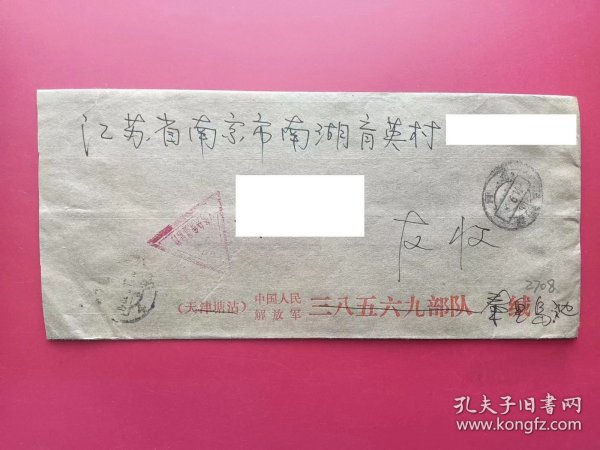 江苏省南京市南湖育英村
友收
2708
(天津塘沽) 中国人民解放军 三八五六九部队 缄
秦皇岛
孔夫子旧书网
www.kongfz.com